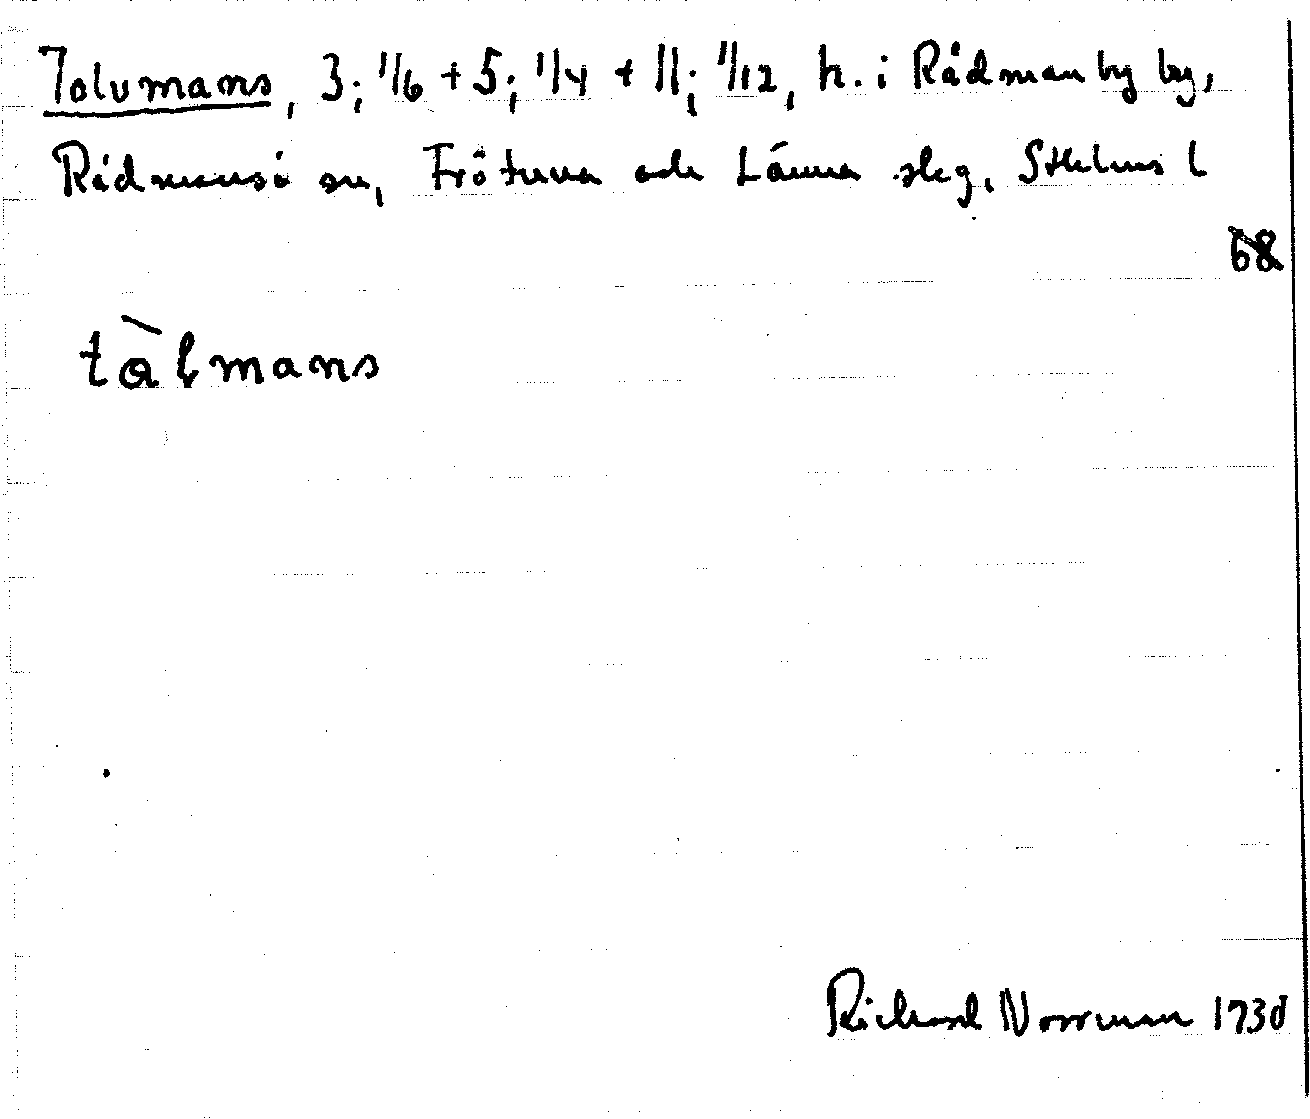 Tolvmans, 3; 1/6 + 5; 1/4 + 11; 1/12, h. i Rådmanby by,
Rådmansö sn, Frötuna och Länna skg, Sthlms l
68
tålmans
Richard Norrman 1930